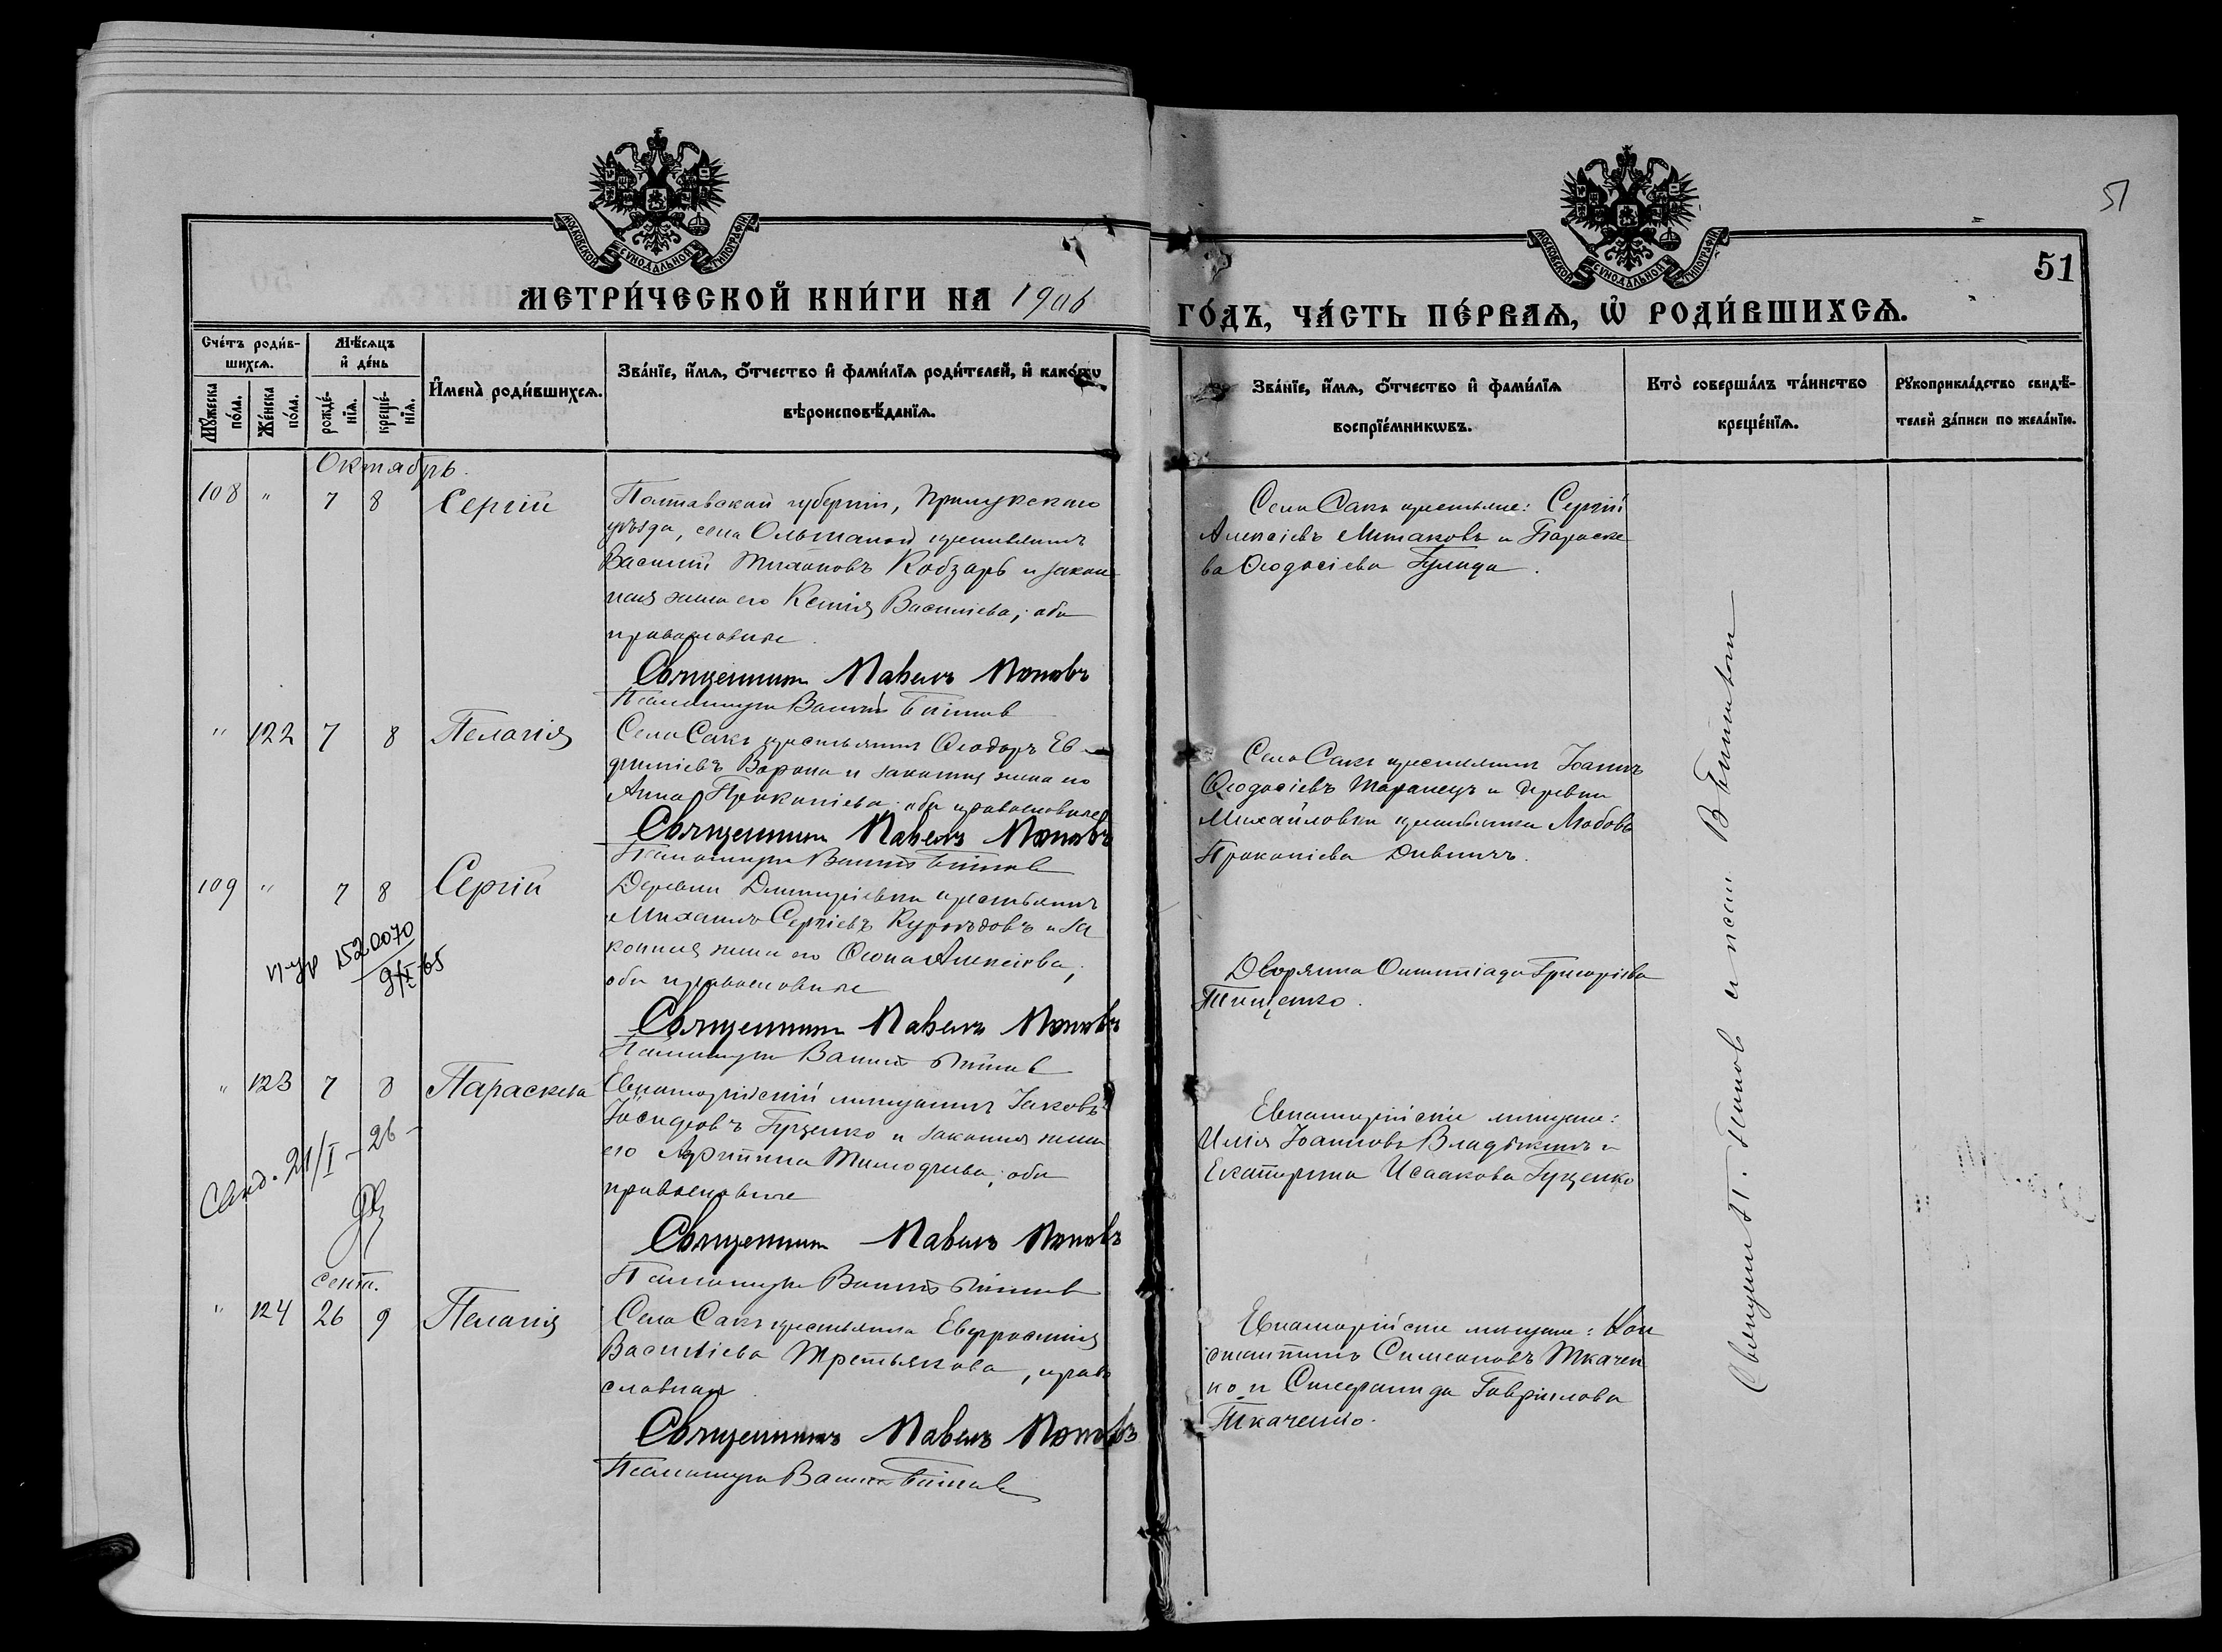 51
МОСКОВСКОЙ СѴНОДАЛЬНОЙ ТИПОГРАФІИ
МОСКОВСКОЙ СѴНОДАЛЬНОЙ ТИПОГРАФІИ
51
МЕТРИ́ЧЕСКОЙ КНИ́ГИ НА 1906
ГО́ДЪ, ЧА́СТЬ ПЕ́РВАѦ, Ѡ҆ РОДИ́ВШИХСѦ.
Сче́тъ роди́в-
шихсѧ.
Мꙋ́жеска по́ла.
Же́нска по́ла.
Мѣ́сѧцъ
и҆ де́нь
рожде́-нїѧ.
креще́-нїѧ.
И҆мена̀ роди́вшихсѧ.
Зва́нїе, и҆́мѧ, ѻ҆́тчество и҆ фами́лїѧ роди́телей, и҆ како́гѡ
вѣроисповѣ́данїѧ.
Зва́нїе, и҆́мѧ, ѻ҆́тчество и҆ фами́лїѧ
воспрїе́мникѡвъ.
Кто̀ соверша́лъ та́инство
креще́нїѧ.
Рꙋкоприкла́дство свидѣ́-
телей за́писи по жела́нїю.
Октябрь.
108 " 7 8 Сергій
Полтавской губерніи, Прилукскаго
уѣзда, села Ольшаной крестьянинъ
Василій Тихоновъ Кобзарь и закон
ная жена его Ксенія Васильева; оба
православные.
Священникъ Павелъ Поповъ
Псаломщикъ
Села Саки крестьяне: Сергій
Алексіевъ Митаковъ и Параске
ва Ѳеодосіева Гулида.
" 122 7 8 Пелагія
Села Саки крестьянинъ Ѳеодоръ Ев
фиміевъ Ворона и законная жена его
Анна Прокопіева; оба православные
Священникъ Павелъ Поповъ
Псаломщикъ
Села Саки крестьянинъ Іоаннъ
Ѳеодосіевъ Таранецъ и деревни
Михайловки крестьянка Любовь
Прокопіева
109 " 7 8 Сергій
Деревни Димитріевки крестьянинъ
Михаилъ Сергіевъ Куроѣдовъ и за
конная жена его Алексіева;
оба православные
Священникъ Павелъ Поповъ
Псаломщикъ
Дворянка Олимпіада Григоріева
Тищенко.
1520070
9/I-65
" 123 7 8 Параскева
Евпаторійскій мѣщанинъ Іаковъ
Іосифовъ Гуценко и законная жена
его Тимофеева; оба
православные
Священникъ Павелъ Поповъ
Псаломщикъ
Евпаторійскіе мѣщане:
Илія Іоанновъ Владыкинъ и
Екатерина Исаакова Гуценко
Свид. 21/I - 26 -
Сент.
" 124 26 9 Пелагія
Села Саки крестьянка Евфросинія
Васильева Третьякова, право
славная.
Священникъ Павелъ Поповъ
Псаломщикъ
Евпаторійскіе мѣщане: Кон
стантинъ Симеоновъ Ткачен
ко и Серафима Гавріилова
Ткаченко.
Священникъ П. Поповъ и псал.